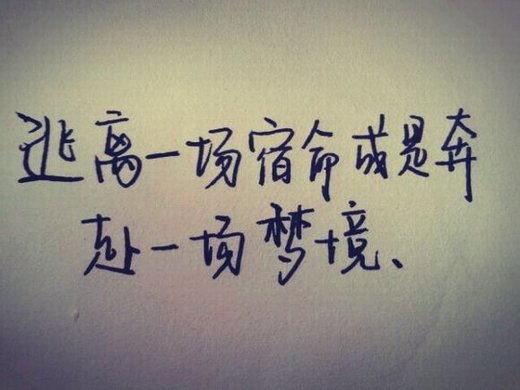 逃离一场宿命或是奔
赴一场梦境、